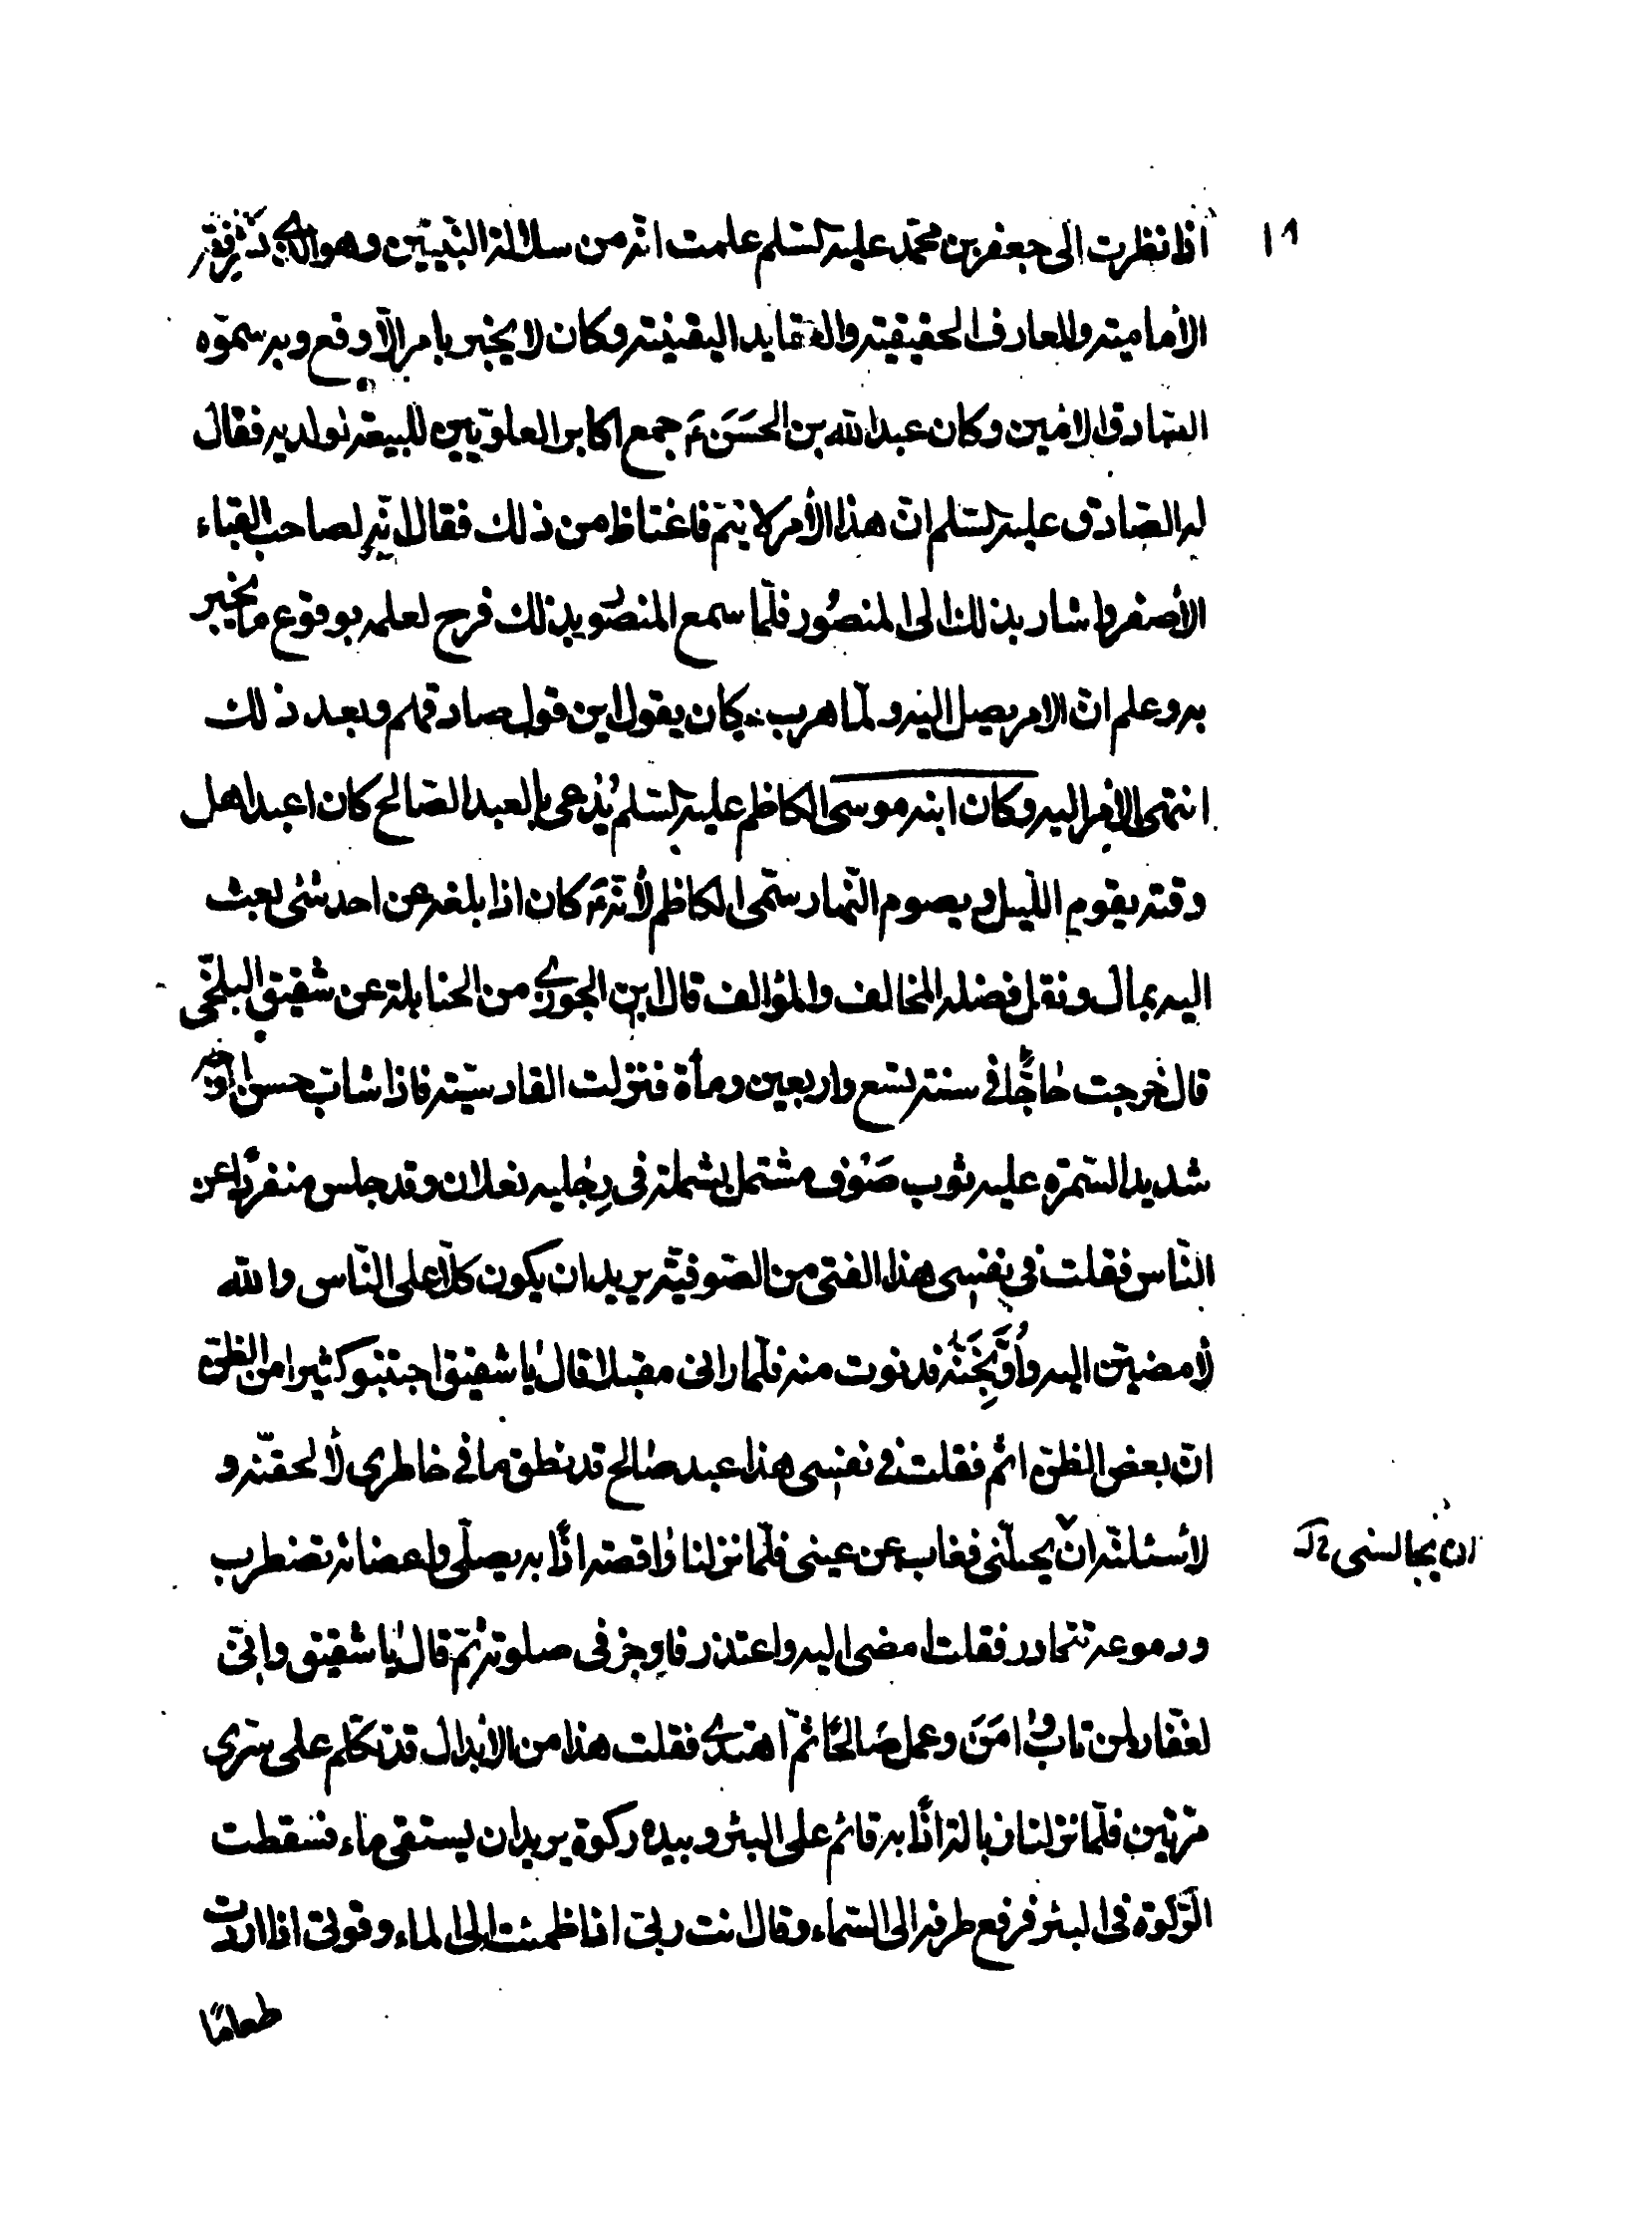 ١٩
اذا نظرت الى جعفر بن محمّد عليه السّلم علمت انّه من سلالة النّبيّين وهو الذي نشر فقه
الأماميّة والمعارف الحقيقيّة والعقايد اليقينيّة وكان لا يخبر بامر الّا وقع وبه سمّوه
الصّادق الامين وكان عبدالله بن الحَسَن ءَ جمع اكابر العلويّين للبيعة لولديه فقال
له الصّادق عليه السّلم انّ هذا الأمر لا يتمّ فاغتاظ من ذلك فقال انّه لصاحب القباء
الأصفر واشار بذلك الى المنصُور فلمّا سمع المنصُور بذلك فرح لعلمه بوقوع ما يخبر
به وعلم انّ الامر يصل اليه ولمّا هرب كان يقول اين قول صادقهم وبعد ذلك
انتهى الأمر اليه وكان ابنه موسى الكاظم عليه السّلم يُدعى بالعبد الصّالح كان اعبد اهل
وقته يقوم اللّيل ويصوم النّهار سمّى الكاظم لأنّه ءَ كان اذا بلغه عن احد شئى بعث
اليه بمال ونقل فضله المخالف والمؤالف قال ابن الجوزي من الحنابلة عن شقيق البلخّى
قال خرجت حاجًّا في سنة تسع واربعين ومأة فنزلت القادسيّة فاذا شابّ حسن الوجه
شديد السّمرة عليه ثوب صَوْف مشتمل بشملة فى رِجليه نعلان وقد جلس منفردًا عن
النّاس فقلت فى نفسى هذا الفتى من الصّوفيّة يريد ان يكون كلّا على النّاس والله
لأمضينّ اليه واُوَبِّخَنَّه فدنوت منه فلمّا رانى مقبلا قال يا شقيق اجتنبو كثيرا من الظنّ
انّ بعض الظنّ اثم فقلت في نفسى هذا عبد صالح قد نطق بما في خاطرى لألحقنّه و
لأسئلنّه ان يحلّنى فغاب عن عينى فلمّا نزلنا واقصة اذًا به يصلّى واعضائه تضطرب
ان يجالسنى
ودموعه تتحادر فقلت امضى اليه واعتذر فاوجز فى صلوته ثمّ قال يا شقيق وانّى
لغفّار لمن تاب وامَنَ وعمل صَالحًا ثمّ اهتدي فقلت هذا من الأبدال قد تكلّم على سرّى
مرّتين فلمّا نزلنا زبالة اذًا به قائم على البئر وبيده ركوة يريد ان يستقى ماء فسقطت
الرّكوة فى البئر فرفع طرفه الى السّماء وقال انت ربّى اذا ظمئت الى الماء وقوتى اذا اردت
طعامًا